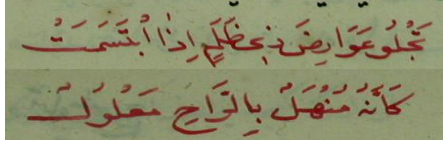 تَجْلُو عَوَارِضَ ذِي ظَلْمٍ اِذَا ابْتَسَمَتْ
كَاَنَّهُ مُنْهَلٌ بِالرَّاحِ مَعْلُولُ